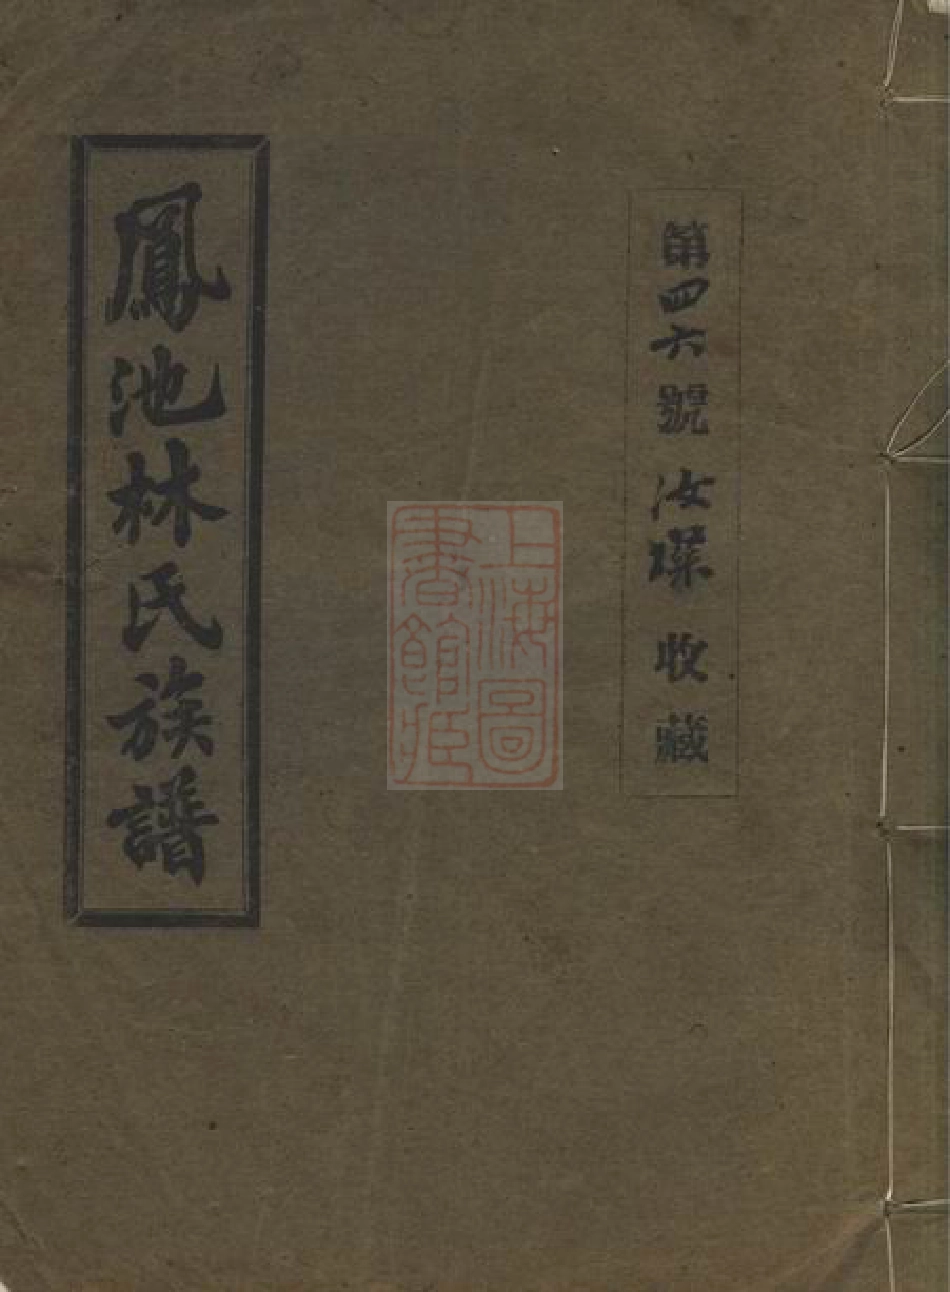 第四六號 汝琛 收藏
上海圖
書館藏
鳳池林氏族譜